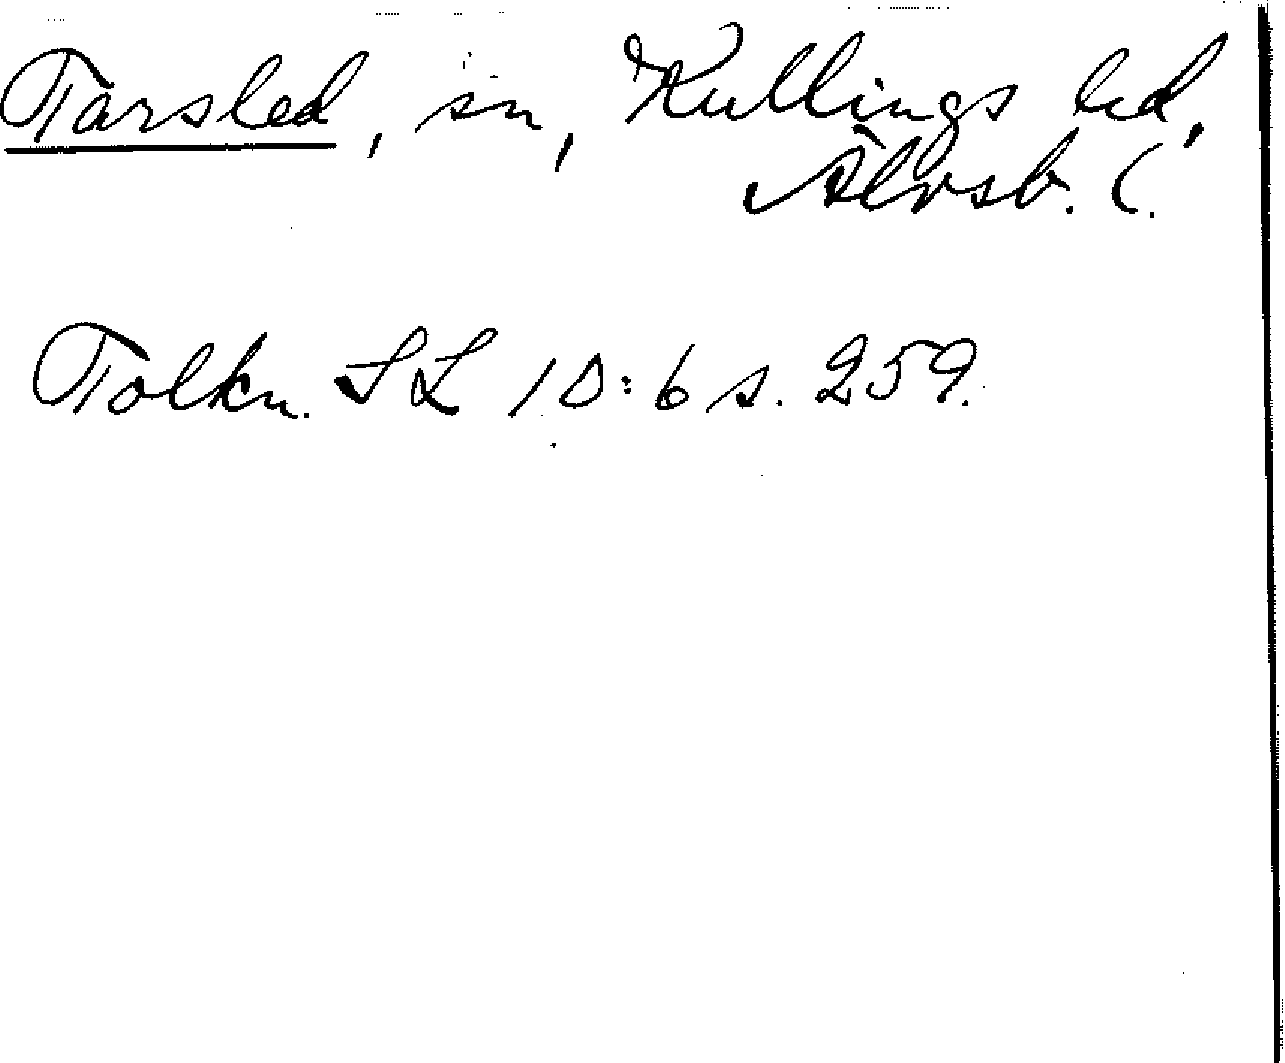 Tarsled, sn, Kullings hd,
Älvsb. l.
Tolkn. SL 10:6 s. 259.